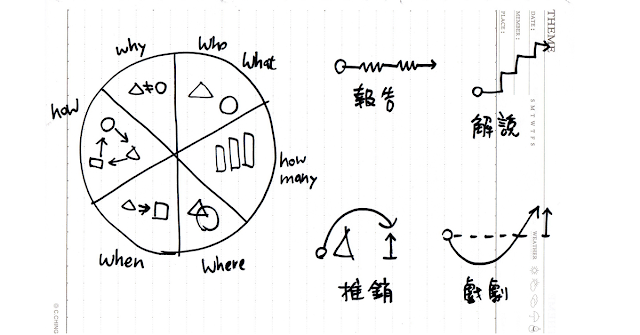 why
Who
What
how
how many
when
Where
報告
解說
推銷
戲劇
THEME
DATE:
MEMBER:
PLACE:
S M T W T F S
WEATHER